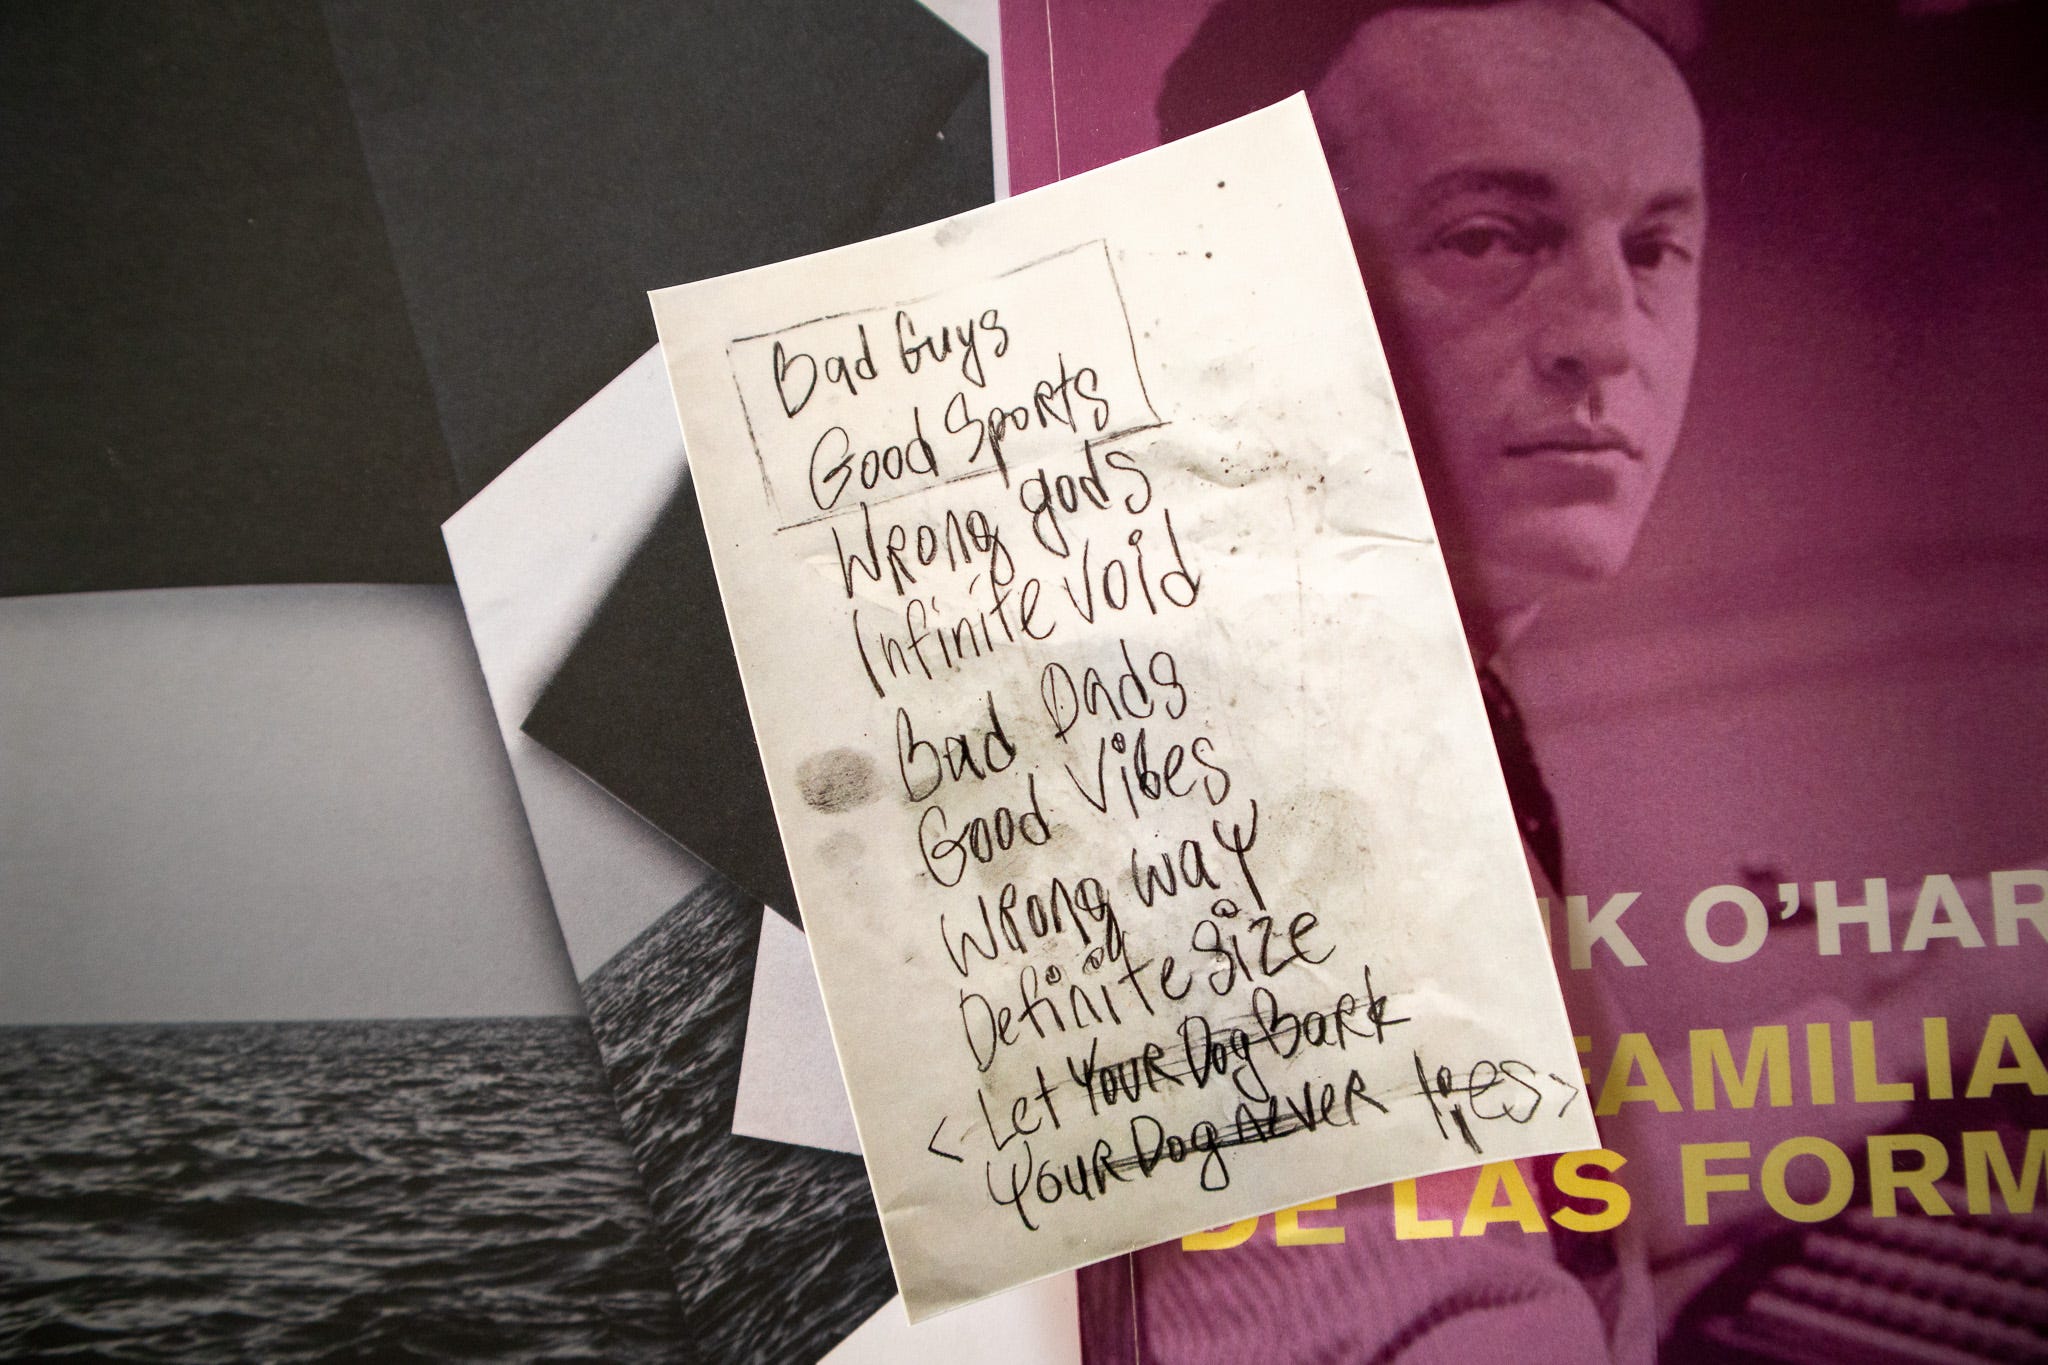 Bad Guys
Good Sports
Wrong gods
Infinite void
Bad Dads
Good Vibes
Wrong way
Definite Size
< Let Your Dog Bark
Your Dog never lies >
NK O'HAR
FAMILIA
DE LAS FORM